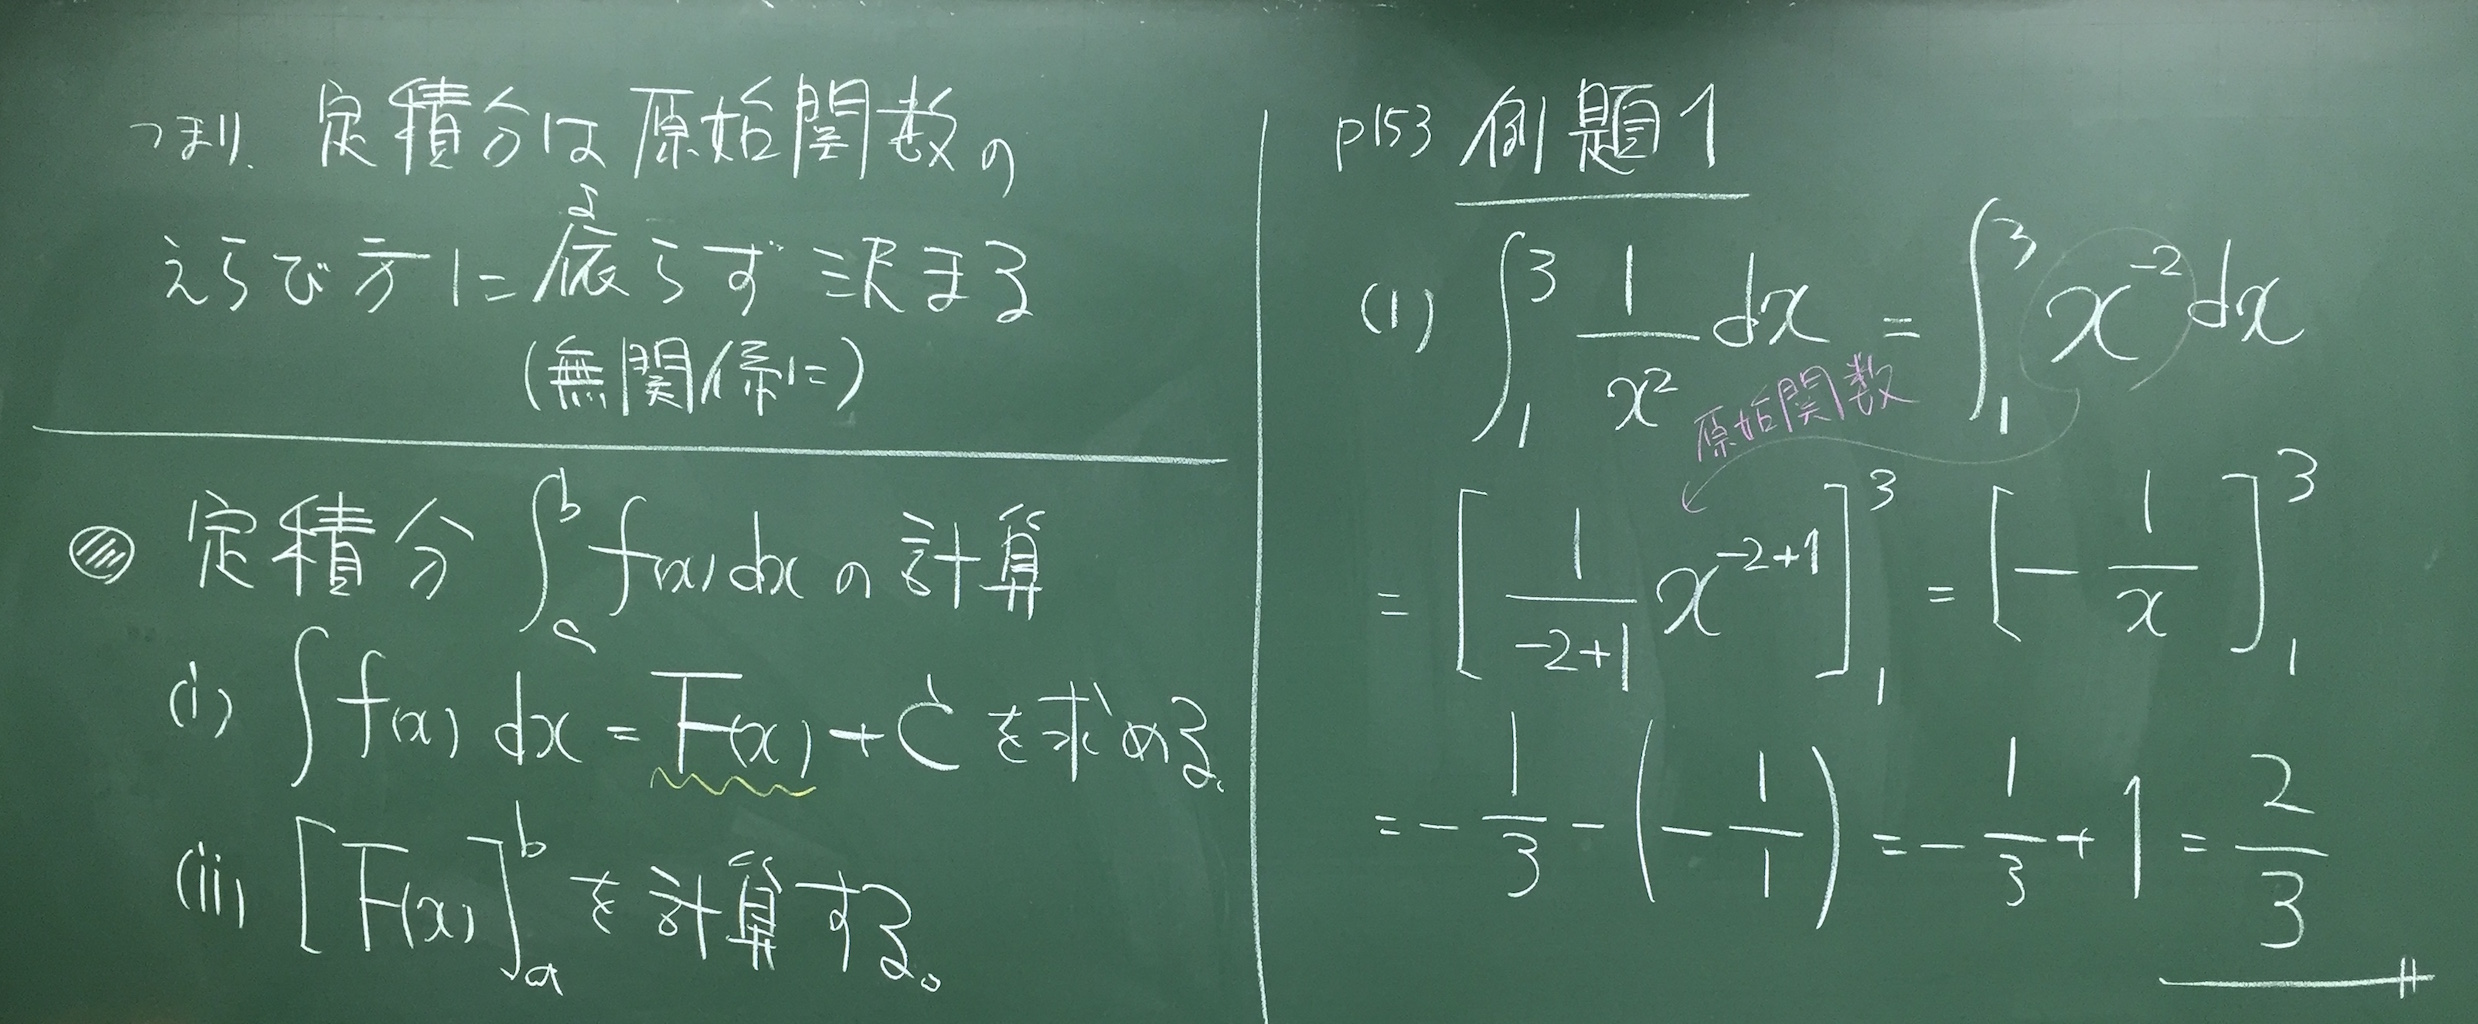 つまり、定積分は原始関数の
えらび方に依らず決まる
よ
(無関係に)
◎ 定積分 ∫_a^b f(x)dx の計算
(i) ∫ f(x) dx = F(x) + C を求める。
(ii) [F(x)]_a^b を計算する。
p153 例題1
(1) ∫_1^3 1/x² dx = ∫_1^3 x^{-2} dx
原始関数
= [1/(-2+1) x^{-2+1}]_1^3 = [-1/x]_1^3
= -1/3 - (-1/1) = -1/3 + 1 = 2/3